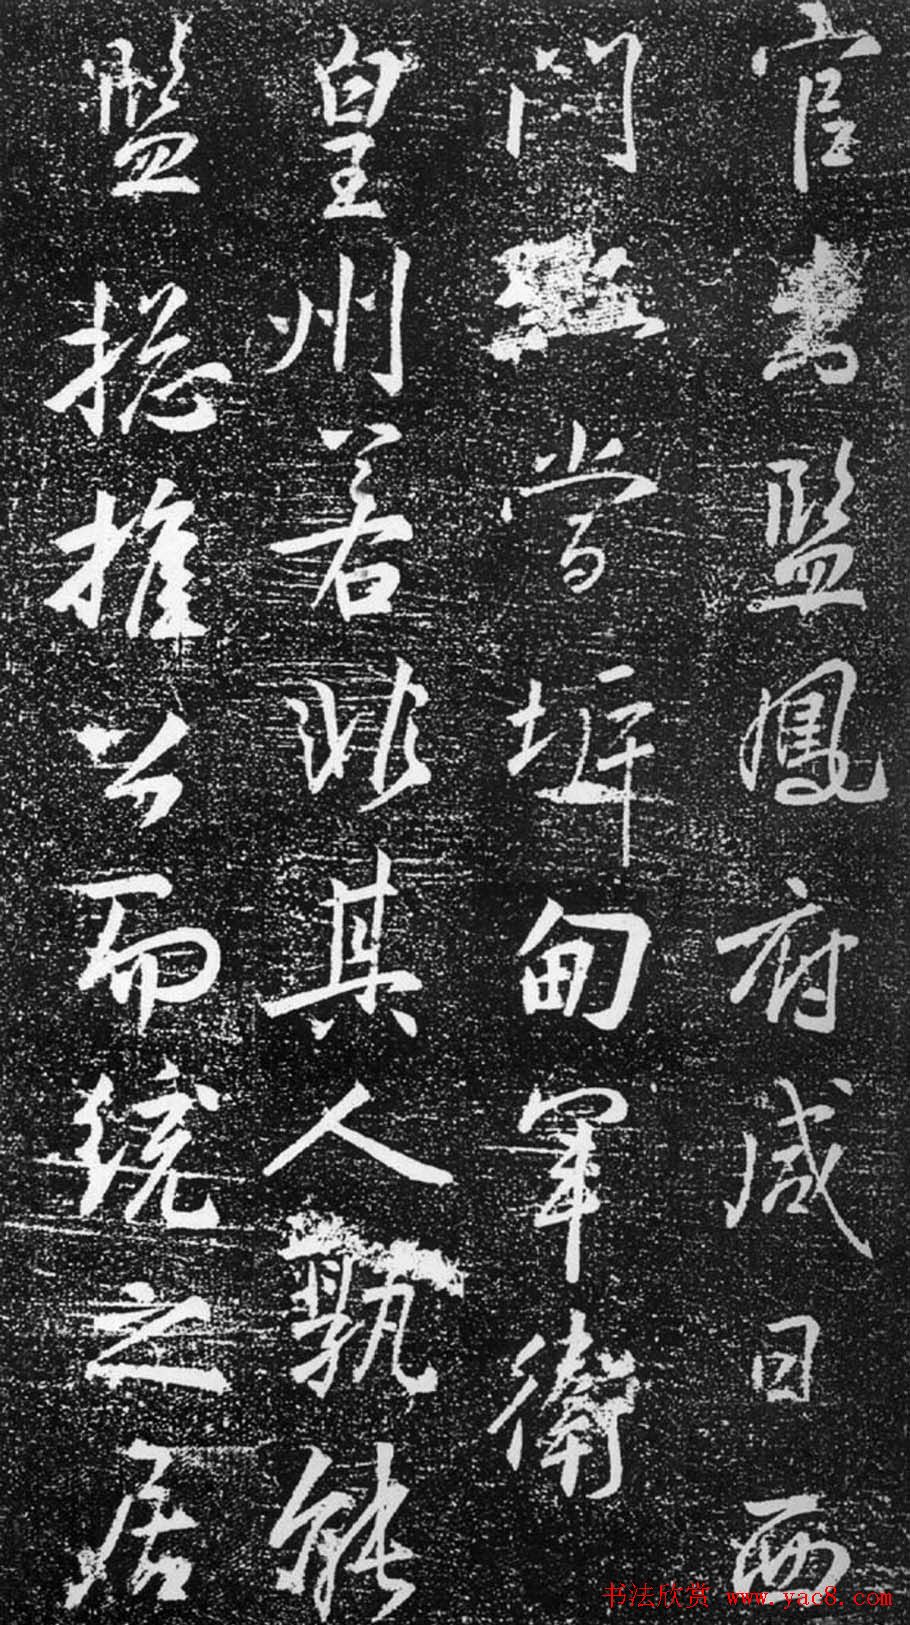 官監鳳府咸曰西
門當圻甸軍衛
皇州若非其人孰能
監揔推公而統之居
书法欣赏 www.yac8.com